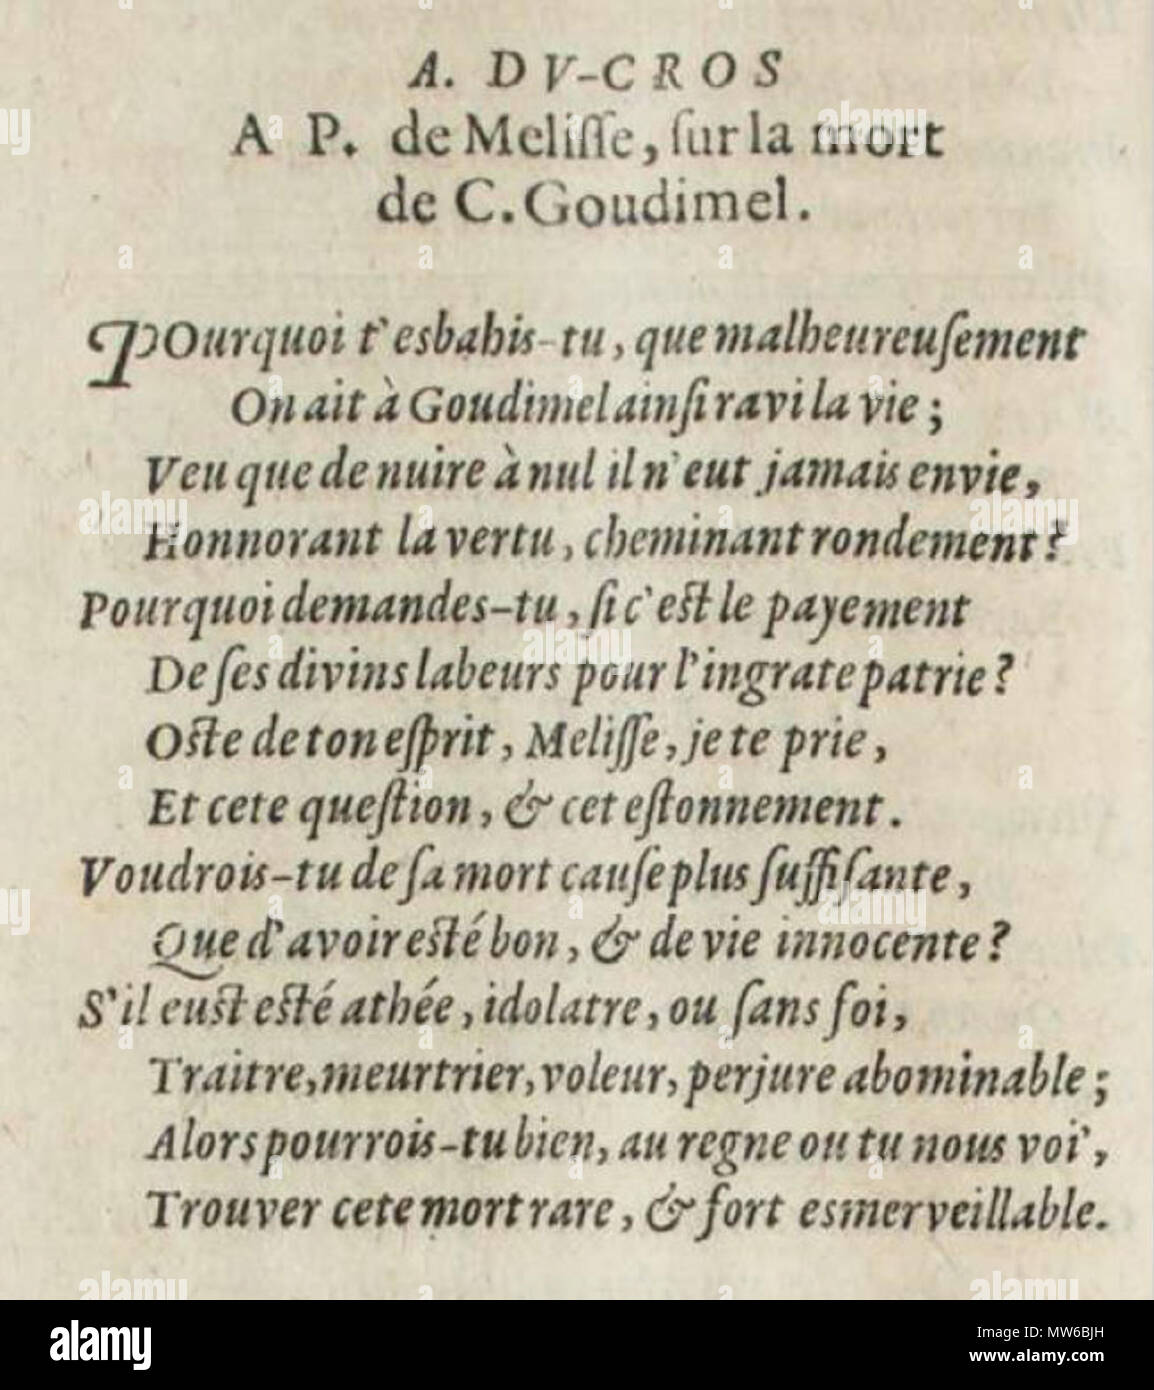 A. DV-CROS
A P. de Meliſſe, ſur la mort
de C. Goudimel.
POurquoi t'esbahis-tu, que malheureuſement
On ait à Goudimel ainſi ravi la vie;
Veu que de nuire à nul il n'eut jamais envie,
Honnorant la vertu, cheminant rondement?
Pourquoi demandes-tu, ſi c'eſt le payement
De ſes divins labeurs pour l'ingrate patrie?
Oſte de ton eſprit, Meliſſe, je te prie,
Et cete queſtion, & cet eſtonnement.
Voudrois-tu de ſa mort cauſe plus ſuffiſante,
Que d'avoir eſté bon, & de vie innocente?
S'il euſt eſté athée, idolatre, ou ſans foi,
Traitre, meurtrier, voleur, perjure abominable;
Alors pourrois-tu bien, au regne ou tu nous voi',
Trouver cete mort rare, & fort esmerveillable.
alamy
Image ID: MW6BJH
www.alamy.com